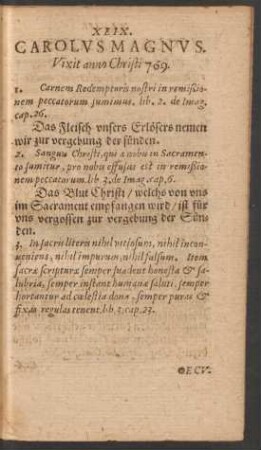 XLIX.
CAROLVS MAGNVS.
Vixit anno Christi 769.
1. Carnem Redemptoris nostri in remißio-
nem peccatorum sumimus. lib. 2. de Imag.
cap. 26.
Das Fleisch vnsers Erlösers nemen
wir zur vergebung der sünden.
2. Sanguis Christi, qui a nobis in Sacramen-
to sumitur, pro nobis effusus est in remißio-
nem peccatorum. lib. 3. de Imag. cap. 6.
Das Blut Christi / welchs von vns
im Sacrament empfangen wird / ist für
vns vergossen zur vergebung der Sün-
den.
3. In sacris literis nihil vitiosum, nihil incon-
ueniens, nihil impurum, nihil falsum. Item
sacræ scripturæ semper suadent honesta & sa-
lubria, semper instant humanæ saluti, semper
hortantur ad cœlestia dona, semper puras &
fixas regulas tenent. lib. 3. cap. 23.
OECV-